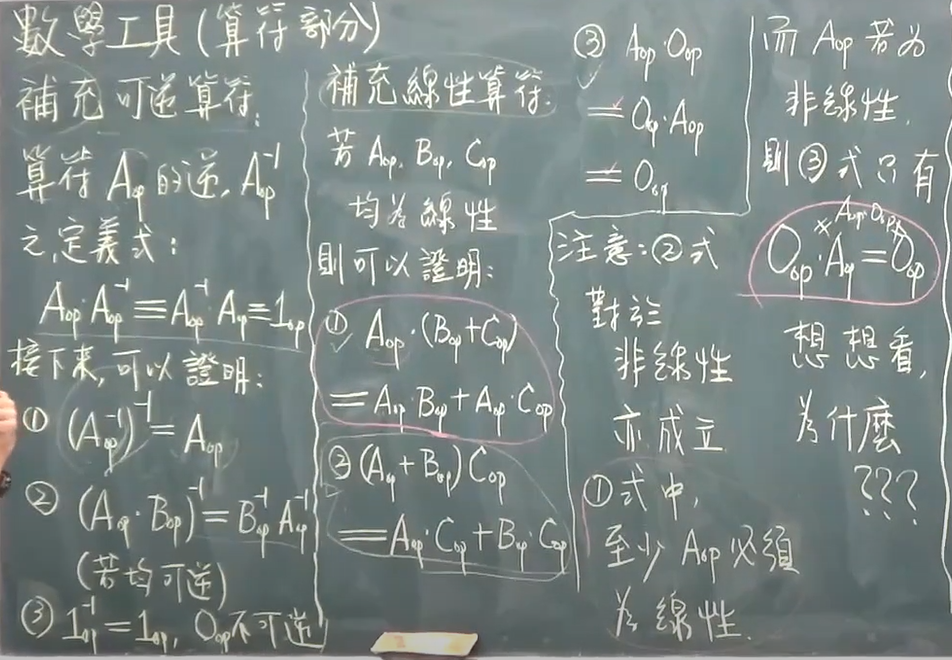 數學工具(算符部分)
補充可逆算符:
算符 Aop 的逆, Aop⁻¹
之定義式:
Aop·Aop⁻¹≡Aop⁻¹·Aop≡1op
接下來,可以證明:
① (Aop⁻¹)⁻¹=Aop
② (Aop·Bop)⁻¹=Bop⁻¹Aop⁻¹
(若均可逆)
③ 1op⁻¹=1op, Oop不可逆
補充線性算符:
若 Aop, Bop, Cop
均為線性
則可以證明:
① Aop·(Bop+Cop)
=Aop·Bop+Aop·Cop
② (Aop+Bop)Cop
=Aop·Cop+Bop·Cop
③ Aop·Oop
=Oop·Aop
=Oop
注意:②式
對於
非線性
亦成立
①式中,
至少 Aop 必須
為線性.
而 Aop 若為
非線性.
則③式只有
Aop·Oop
Oop·Aop=Oop
想想看,
為什麼
???